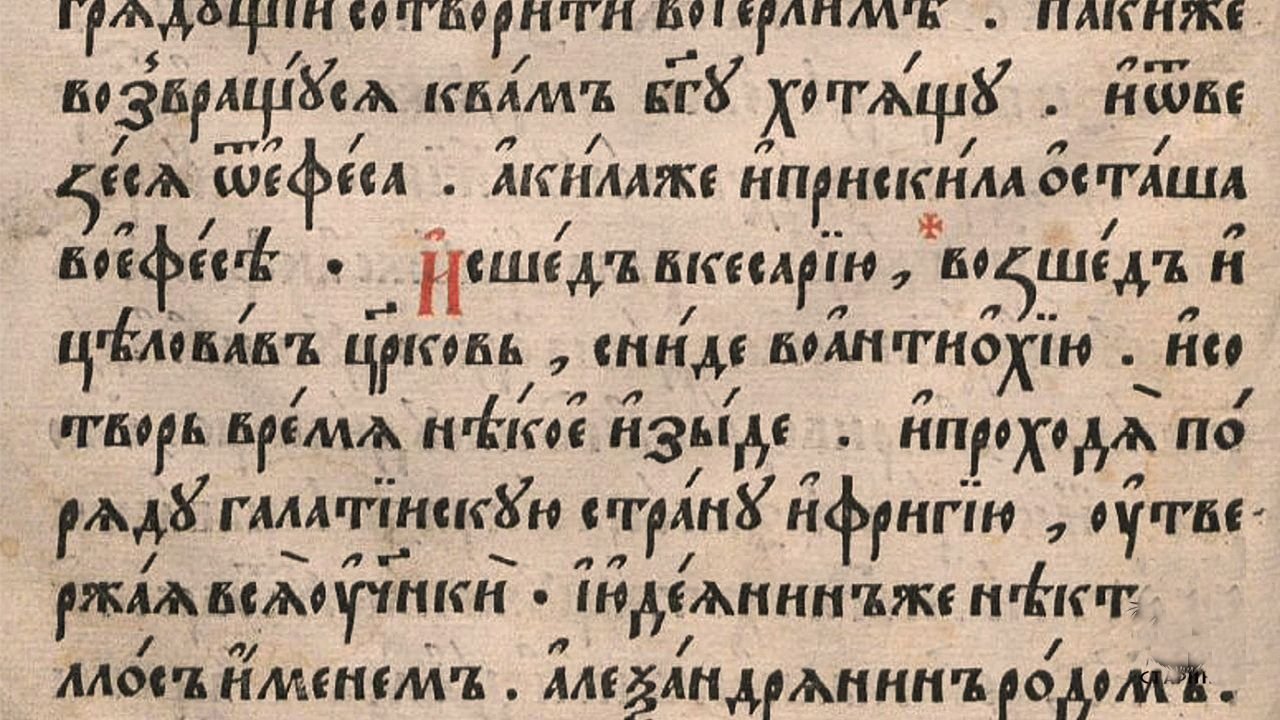 грѧдꙋщїй сотворити воіерлимѣ . пакиже
воз̾вращꙋ́сѧ ква́мъ бг҃ꙋ хотѧ́щꙋ . и҆ѿве
зе́сѧ ѿе҆фе́са . а҆ки́лаже и҆приски́ла ѻ҆ста́ша
вое҆фе́сѣ . И҆сше́дъ вкесарі́ю , возше́дъ и҆
цѣлова́въ цр҃ковь , сни́де воа҆нтиѻ҆хі́ю . и҆со
творь вре́мѧ нѣ́кое҆ и҆зы́де . и҆проходѧ̀ по́
рѧдꙋ галаті́нскꙋю стра́нꙋ и҆фригі́ю , оу҆тве
ржа́ѧ всѧ̀ оу҆чн҃кѝ . і҆и҆ꙋде́ѧнинъже нѣкт
ллѻ́съ и҆́менемъ . а҆леѯа́ндрѧнинъ ро́домъ .